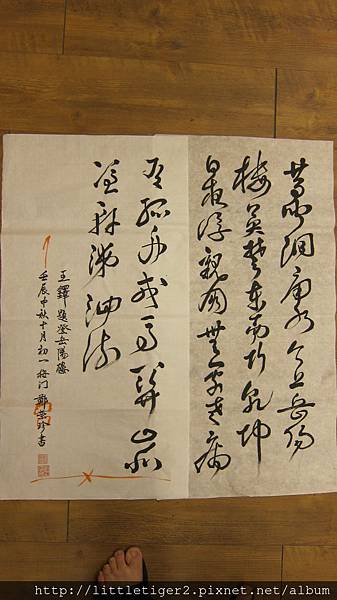 昔聞洞庭水今上岳陽
樓吳楚東南坼乾坤
日夜浮親朋無一字老病
有孤舟戎馬關山北
憑軒涕泗流
王鐸題登岳陽樓
壬辰中秋十月初一梅门鄭珍書
http://littletiger2.pixnet.net/album